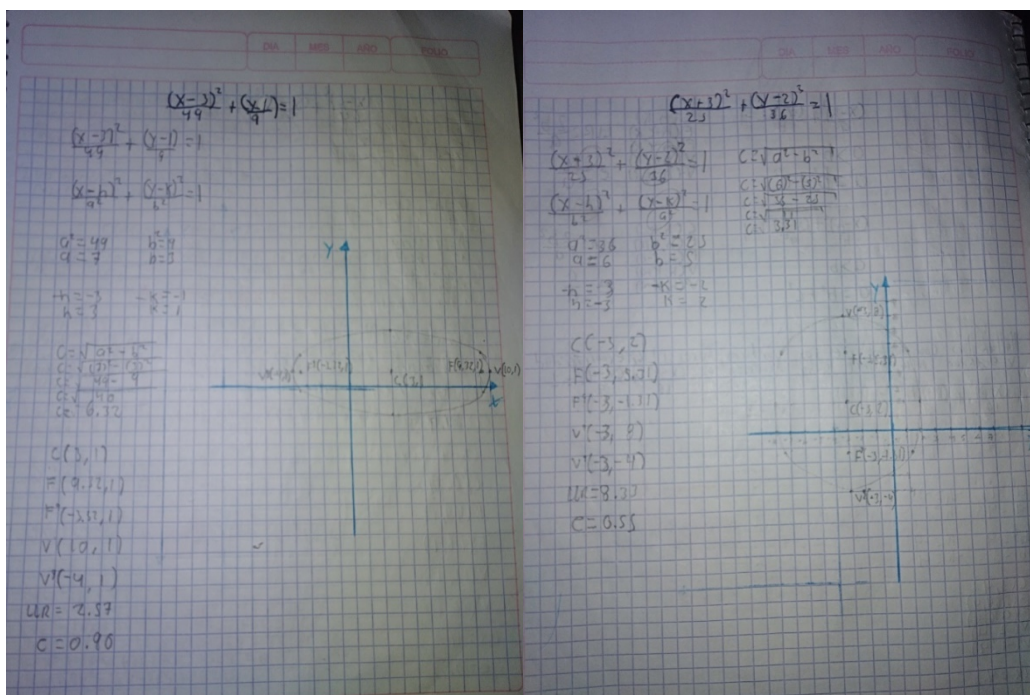 DIA MES AÑO FOLIO
(x-3)²/49 + (y-1)/9 = 1
(x-3)²/49 + (y-1)/9 = 1
(x-h)²/a² + (y-k)²/b² = 1
a²=49 b²=9
a=7 b=3
-h=-3 -k=-1
h=3 k=1
C=√a²-b²
C=√(7)²-(3)²
C=√49-9
C=√40
C= 6.32
C(3,1)
F(9.32,1)
F'(-3.32,1)
V(10,1)
V'(-4,1)
LLR= 2.57
C=0.90
Y
X
F(9.32,1)
V(10,1)
C(3,1)
DIA MES AÑO FOLIO
(x+3)²/25 + (y-2)²/36 = 1
(x+3)²/25 + (y-2)²/36 = 1
(x-h)²/b² + (y-k)²/a² = 1
a²=36 b²=25
a=6 b=5
-h=3 -k=-2
h=-3 k=2
C=√a²-b²
C=√(6)²-(5)²
C=√36-25
C=√11
C= 3.31
C(-3,2)
F(-3,5.31)
F'(-3,-1.31)
V(-3,8)
V'(-3,-4)
LLR=8.33
C=0.55
Y
V(-3,8)
C(-3,2)
F'(-3,-1.31)
V'(-3,-4)